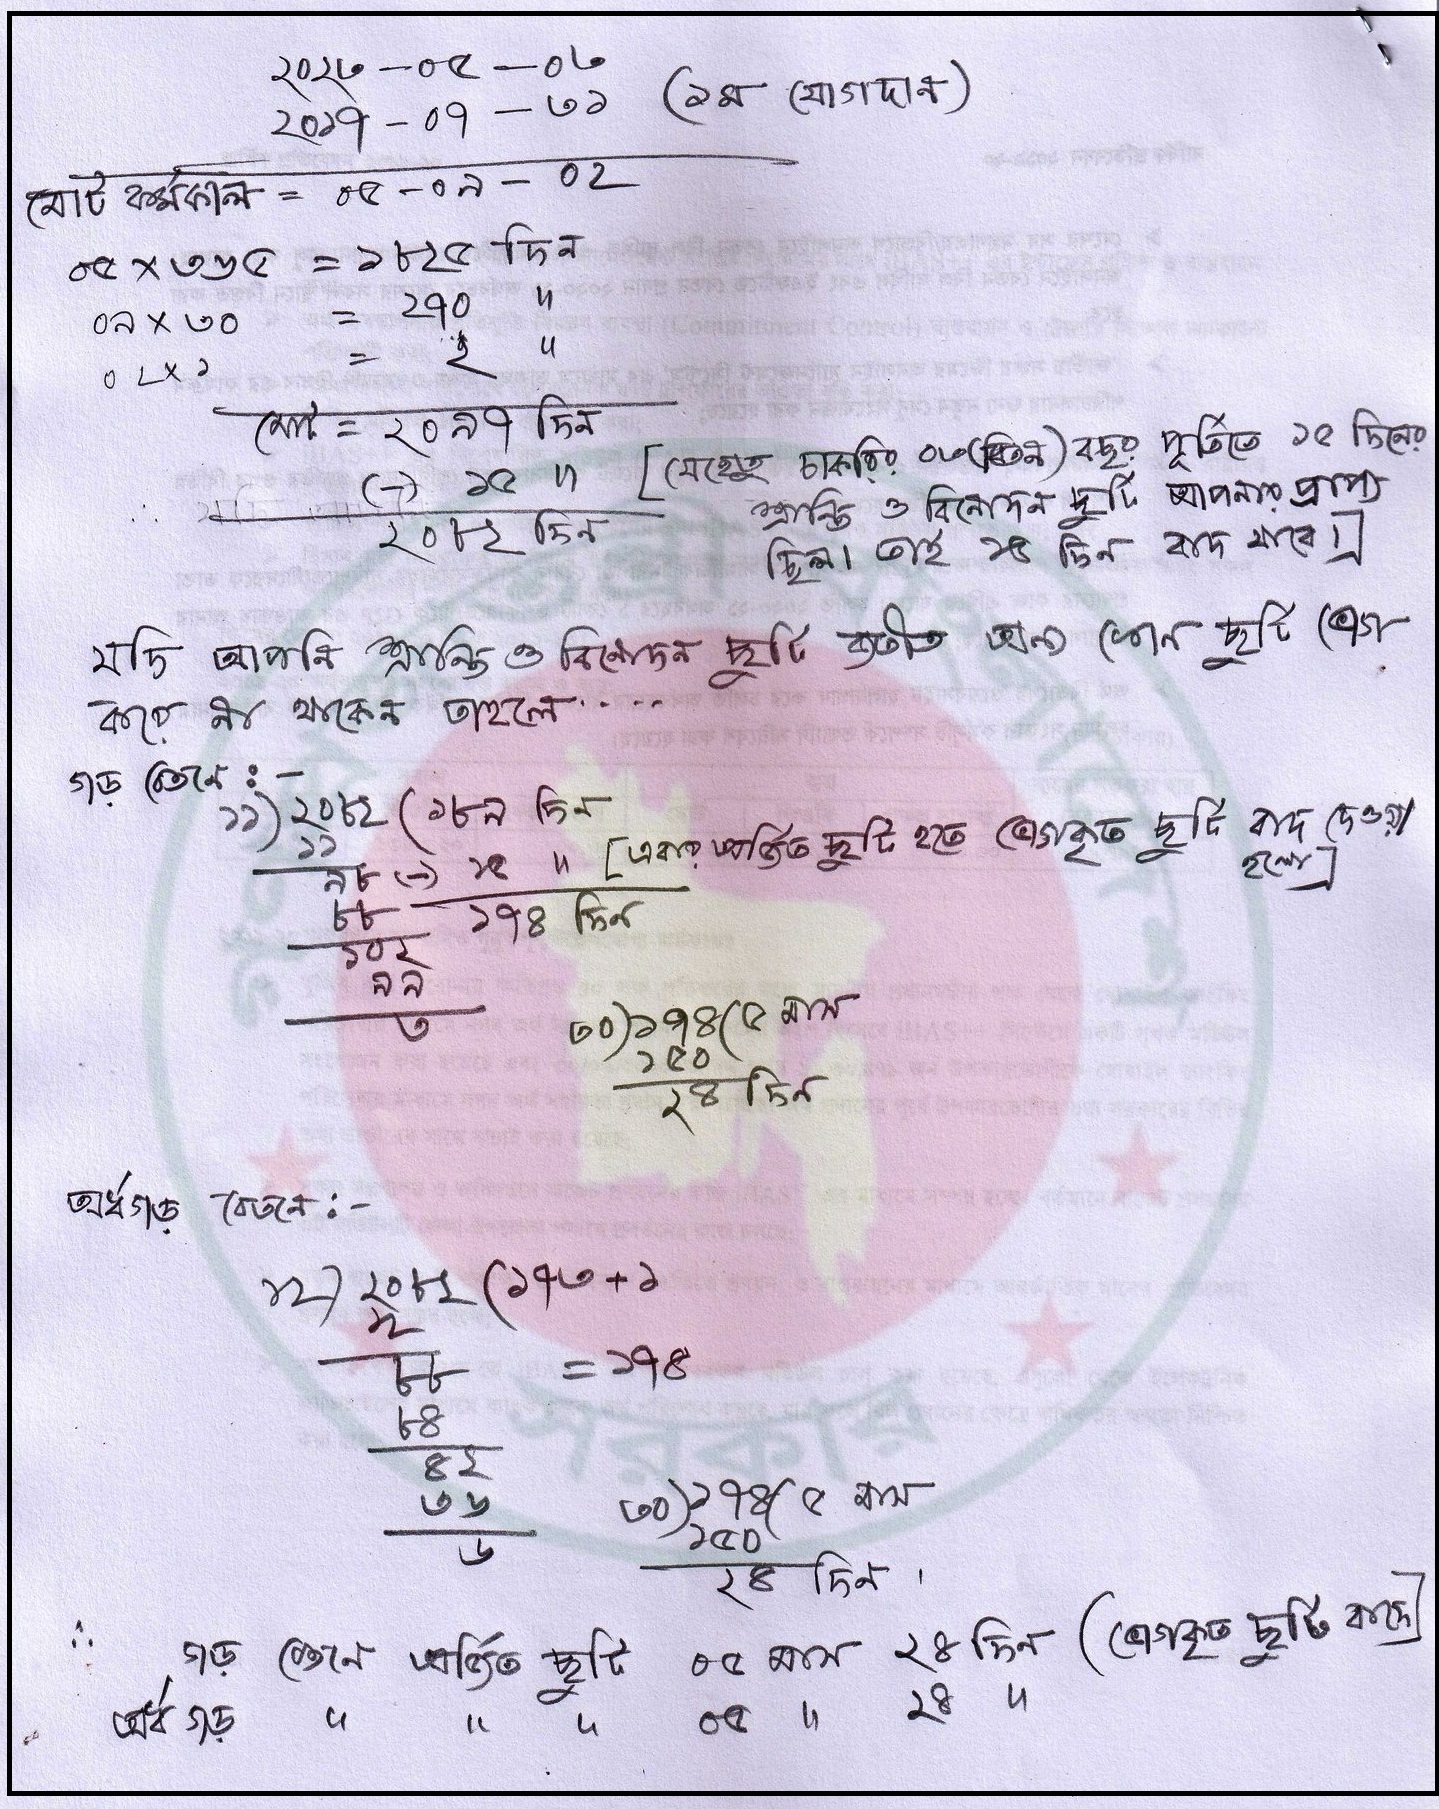 ২০২৩ – ০৫ – ০৩
২০১৭ – ০৭ – ৩১ (১ম যোগদান)
মোট কর্মকাল = ০৫ – ০৯ – ০২
০৫ × ৩৬৫ = ১৮২৫ দিন
০৯ × ৩০ = ২৭০ "
০২ × ১ = ২ "
মোট = ২০৯৭ দিন
(–) ১৫ " [যেহেতু চাকরির ০৩ (তিন) বছর পূর্তিতে ১৫ দিনের
শ্রান্তি ও বিনোদন ছুটি আপনার প্রাপ্য
ছিল। তাই ১৫ দিন বাদ যাবে।]
২০৮২ দিন
যদি আপনি শ্রান্তি ও বিনোদন ছুটি ব্যতীত অন্য কোন ছুটি ভোগ
করে না থাকেন তাহলে.....
গড় বেতনে :–
১১) ২০৮২ ( ১৮৯ দিন
১১
৯৮ (–) ১৫ " [এবার অর্জিত ছুটি হতে ভোগকৃত ছুটি বাদ দেওয়া
হলো]
৮৮ ১৭৪ দিন
১০২
৯৯
৩
৩০) ১৭৪ ( ৫ মাস
১৫০
২৪ দিন
অর্ধগড় বেতনে :–
১২) ২০৮২ ( ১৭৩ + ১
১২
৮৮ = ১৭৪
৮৪
৪২
৩৬
৬
৩০) ১৭৪ ( ৫ মাস
১৫০
২৪ দিন ।
∴ গড় বেতনে অর্জিত ছুটি ০৫ মাস ২৪ দিন (ভোগকৃত ছুটি বাদে]
অর্ধ গড় " " " ০৫ " ২৪ "
সরকার